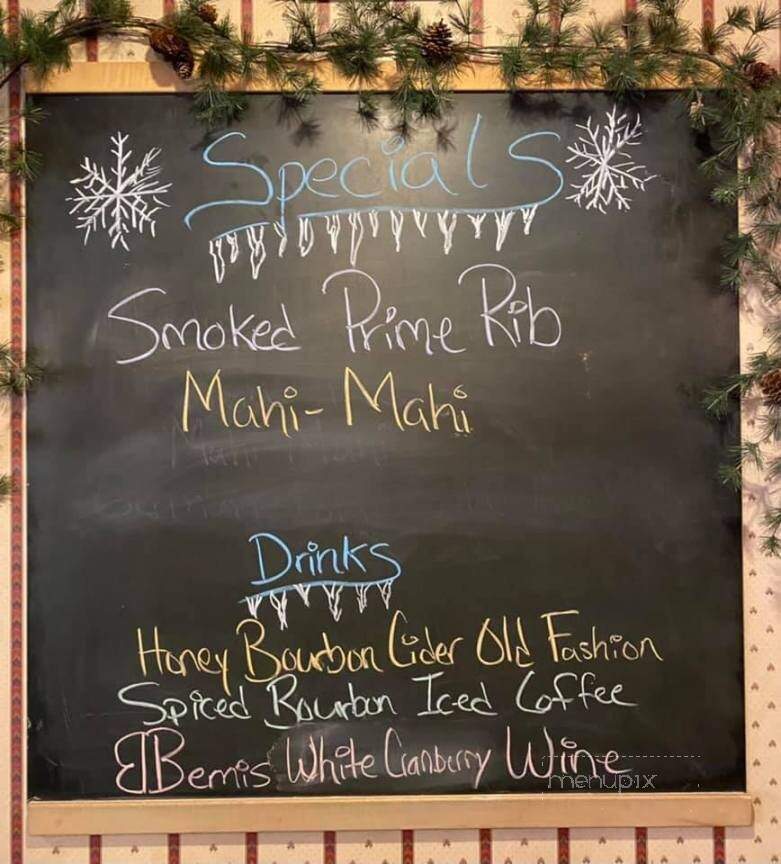 Specials
Smoked Prime Rib
Mahi-Mahi
Mahi Mahi
Drinks
Honey Bourbon Cider Old Fashion
Spiced Bourbon Iced Coffee
Bemis White Cranberry Wine
menupix